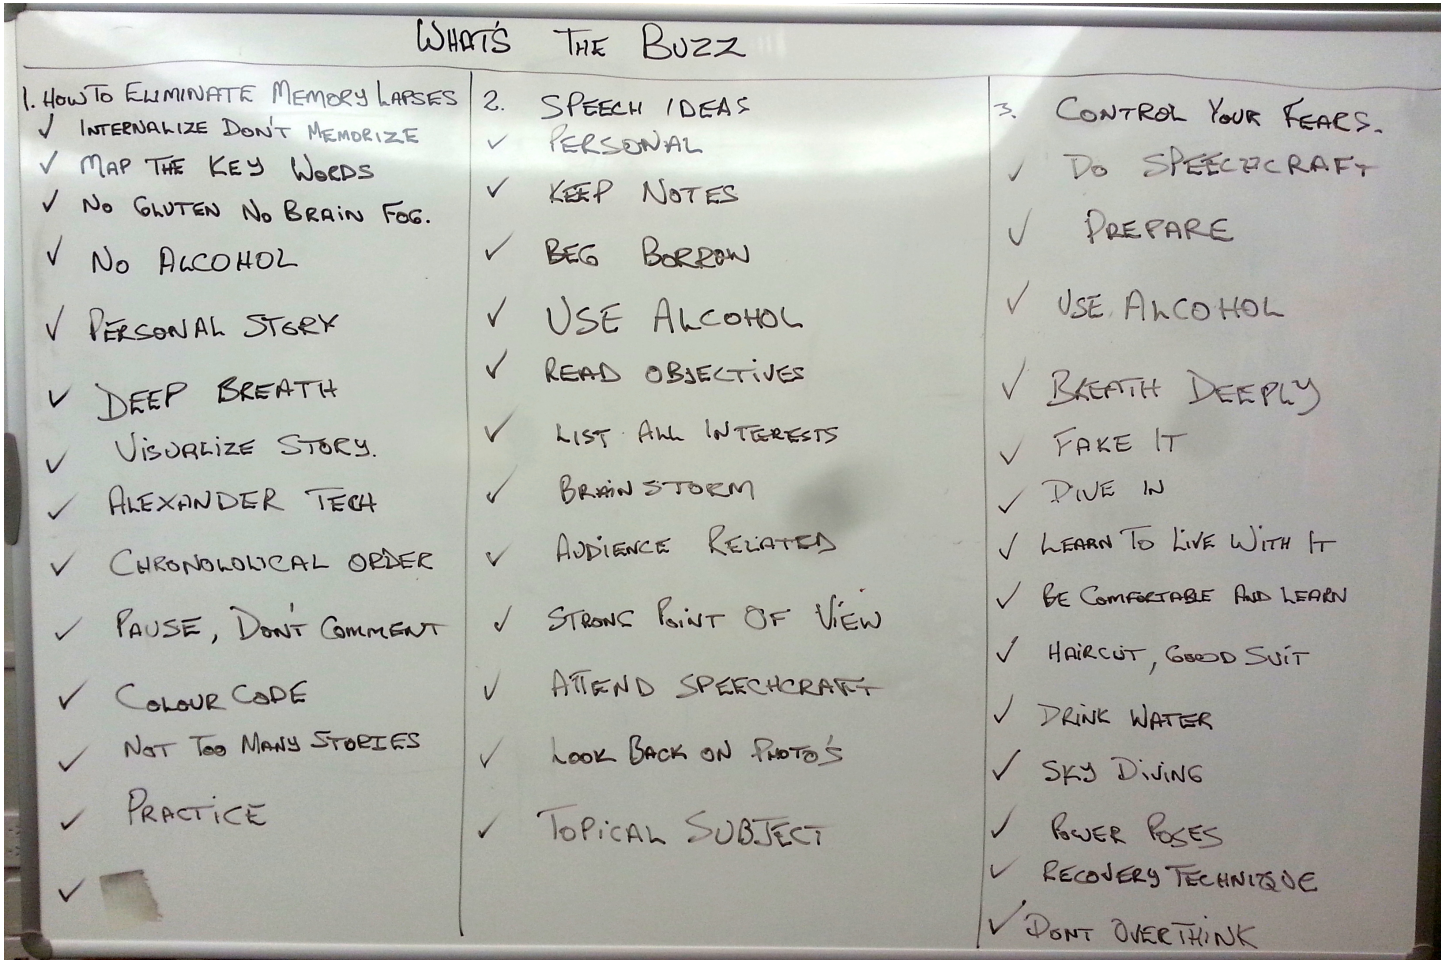 WHAT'S THE BUZZ
1. HOW TO ELIMINATE MEMORY LAPSES
✓ INTERNALIZE DON'T MEMORIZE
✓ MAP THE KEY WORDS
✓ NO GLUTEN NO BRAIN FOG.
✓ NO ALCOHOL
✓ PERSONAL STORY
✓ DEEP BREATH
✓ VISUALIZE STORY.
✓ ALEXANDER TECH
✓ CHRONOLOLICAL ORDER
✓ PAUSE, DON'T COMMENT
✓ COLOUR CODE
✓ NOT TOO MANY STORIES
✓ PRACTICE
✓
2. SPEECH IDEAS
✓ PERSONAL
✓ KEEP NOTES
✓ BEG BORROW
✓ USE ALCOHOL
✓ READ OBJECTIVES
✓ LIST ALL INTERESTS
✓ BRAIN STORM
✓ AUDIENCE RELATED
✓ STRONG POINT OF VIEW
✓ ATTEND SPEECHCRAFT
✓ LOOK BACK ON PHOTO'S
✓ TOPICAL SUBJECT
3. CONTROL YOUR FEARS.
✓ DO SPEECHCRAFT
✓ PREPARE
✓ USE ALCOHOL
✓ BREATH DEEPLY
✓ FAKE IT
✓ DIVE IN
✓ LEARN TO LIVE WITH IT
✓ BE COMFORTABLE AND LEARN
✓ HAIRCUT, GOOD SUIT
✓ DRINK WATER
✓ SKY DIVING
✓ POWER POSES
✓ RECOVERY TECHNIQUE
✓ DONT OVERTHINK